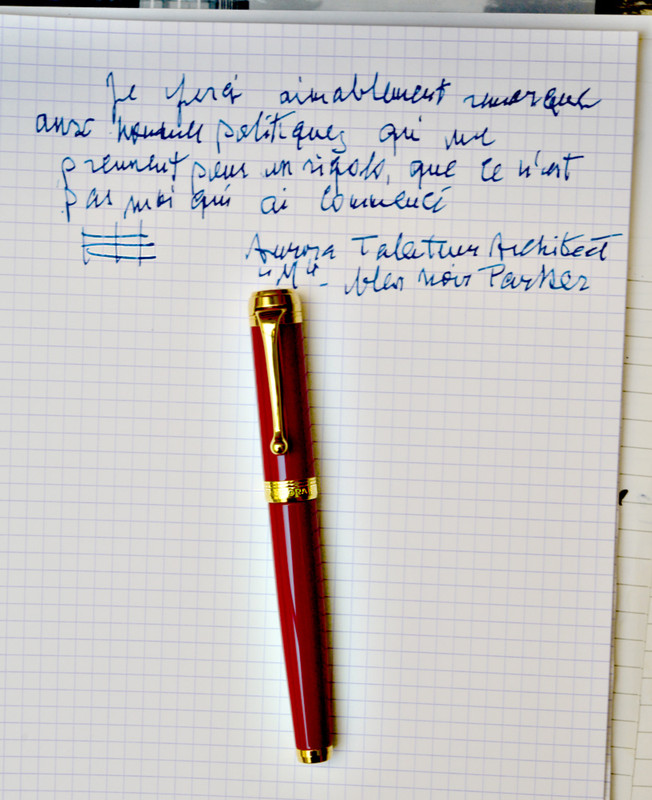 Je ferai aimablement remarquer
aux hommes politiques qui me
prennent pour un rigolo, que ce n'est
pas moi qui ai commencé
Aurora Talentum Architect
"M" - bleu noir Parker